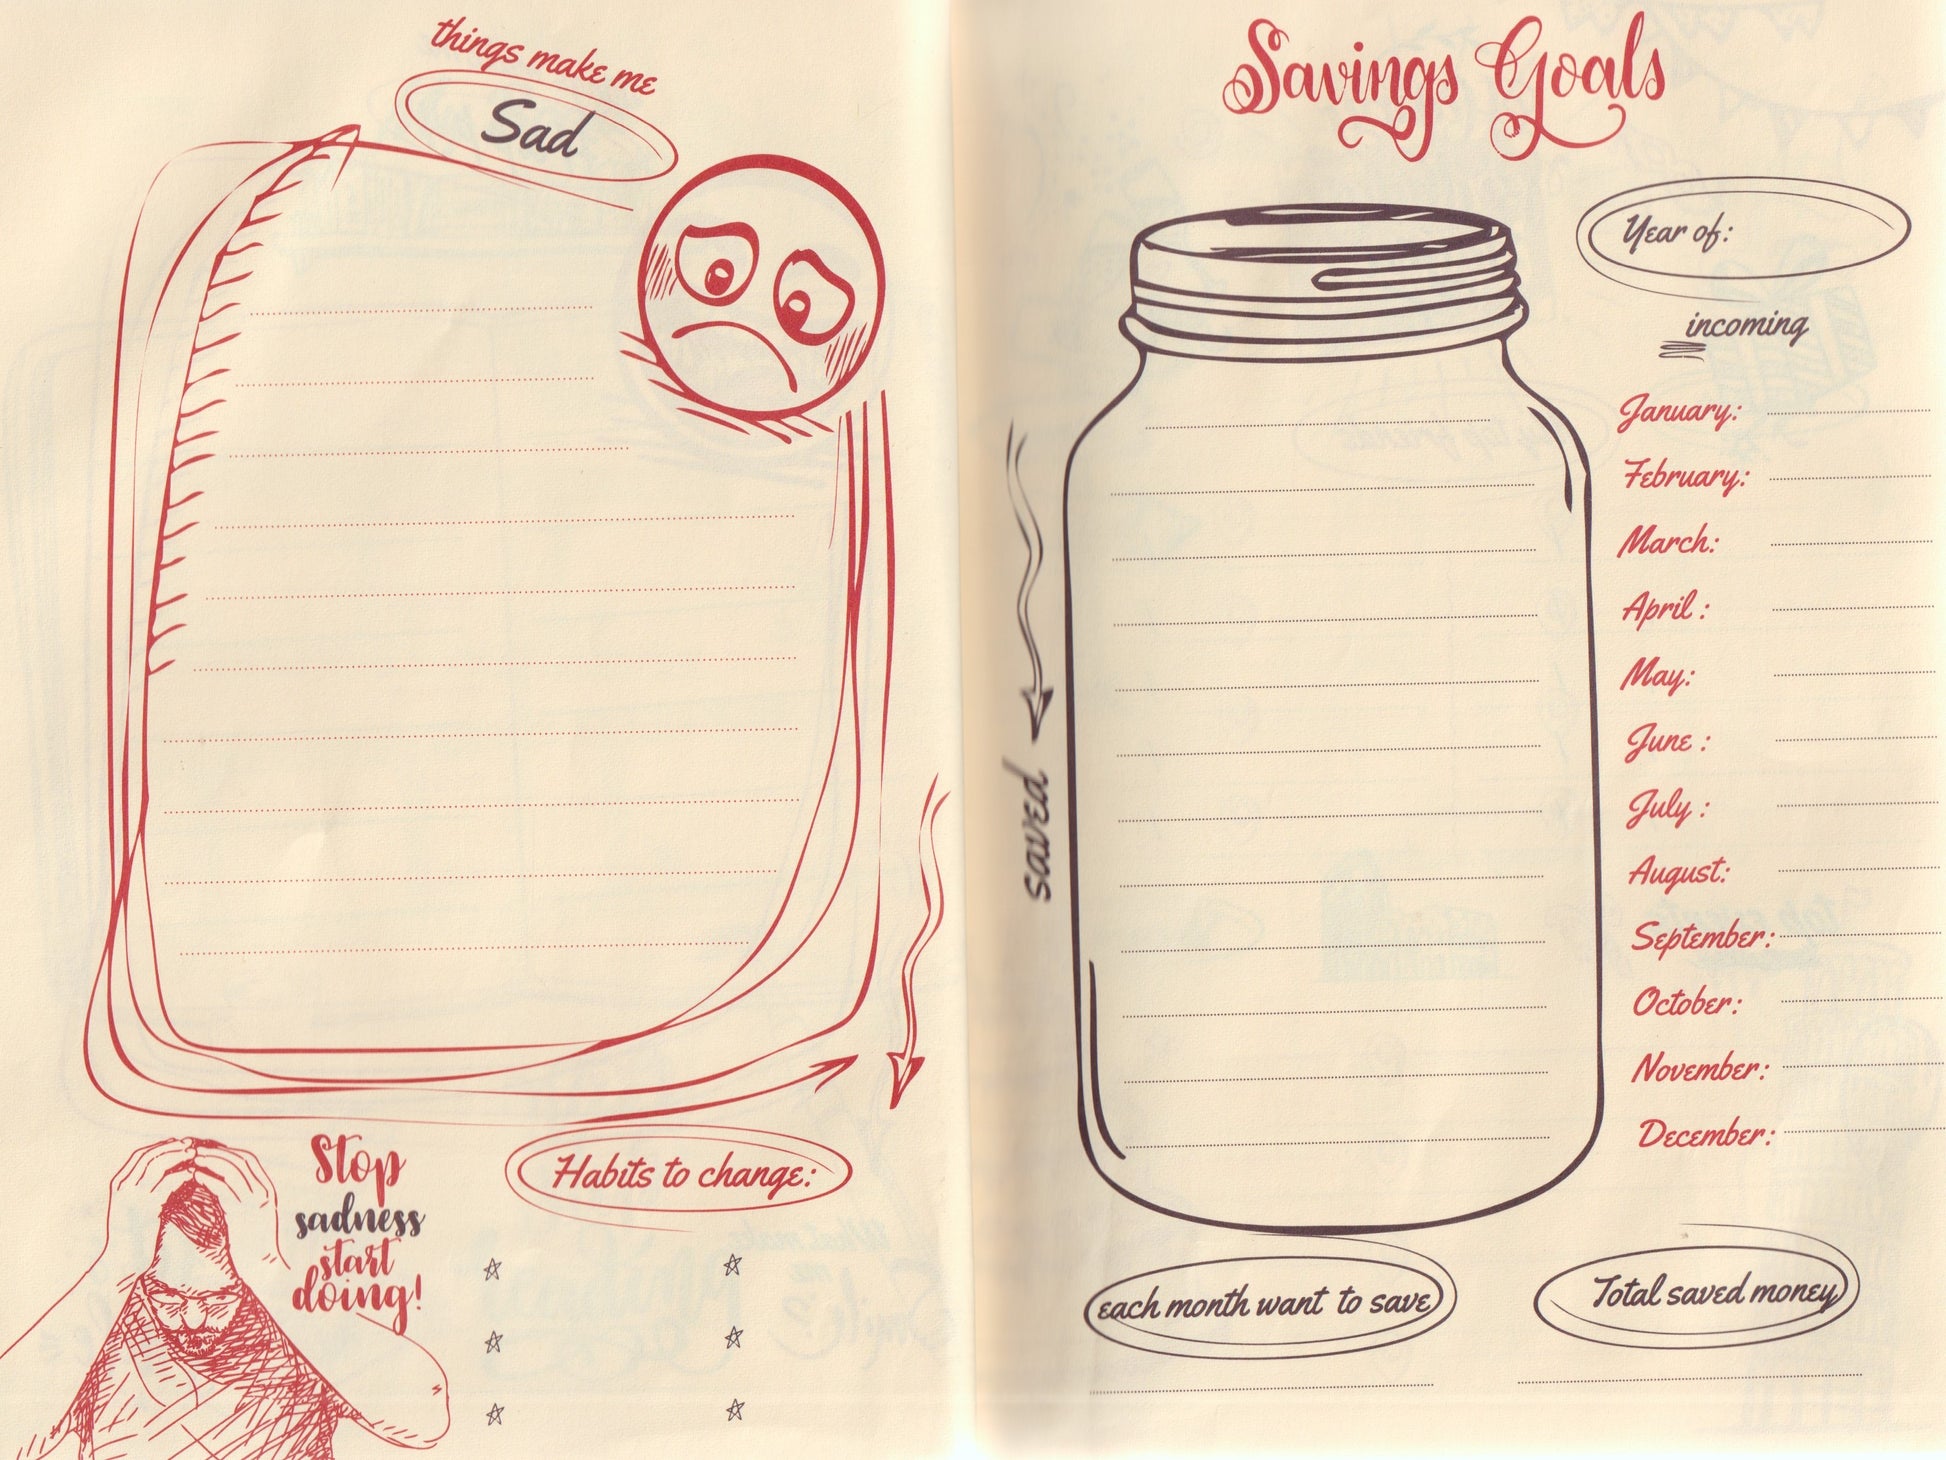 things make me
Sad
Stop
sadness
start
doing!
Habits to change:
Savings Goals
Year of:
incoming
January:
February:
March:
April :
May:
June :
July :
August:
September:
October:
November:
December:
saved
each month want to save
Total saved money